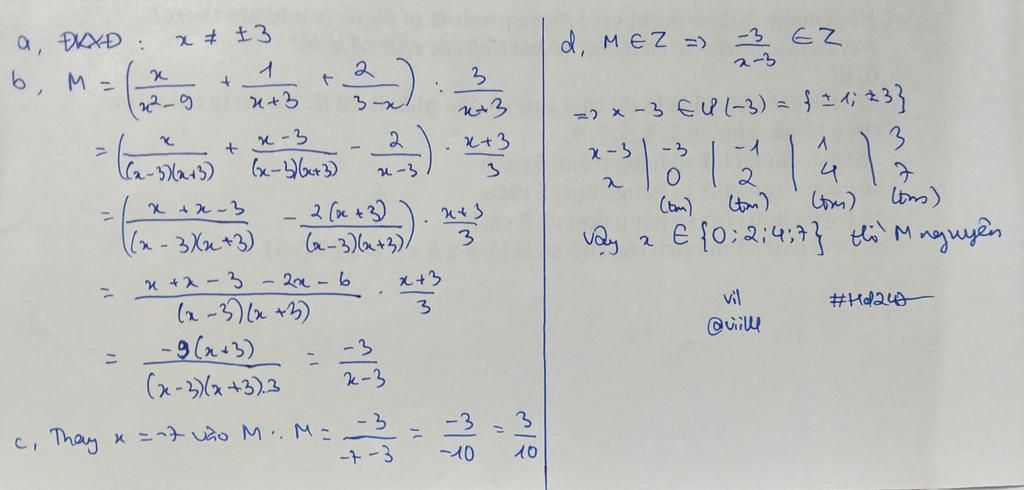 a, ĐKXĐ : x ≠ ±3
b, M = (x/(x²-9) + 1/(x+3) + 2/(3-x)) : 3/(x+3)
= (x/((x-3)(x+3)) + (x-3)/((x-3)(x+3)) - 2/(x-3)) . (x+3)/3
= ((x+x-3)/((x-3)(x+3)) - 2(x+3)/((x-3)(x+3))) . (x+3)/3
= (x+x-3-2x-6)/((x-3)(x+3)) . (x+3)/3
= -9(x+3)/((x-3)(x+3).3) = -3/(x-3)
c, Thay x = -7 vào M : M = -3/(-7-3) = -3/-10 = 3/10
d, M ∈ Z => -3/(x-3) ∈ Z
=> x-3 ∈ Ư(-3) = {±1; ±3}
x-3 | -3 | -1 | 1 | 3
x | 0 | 2 | 4 | 7
(tm) (tm) (tm) (tm)
Vậy x ∈ {0;2;4;7} thì M nguyên
vil